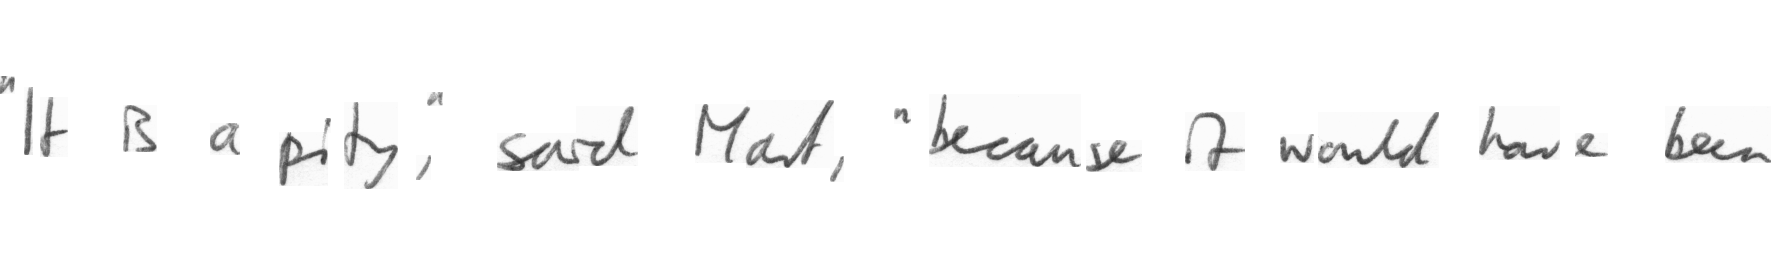 "It is a pity," said Mart, "because it would have been